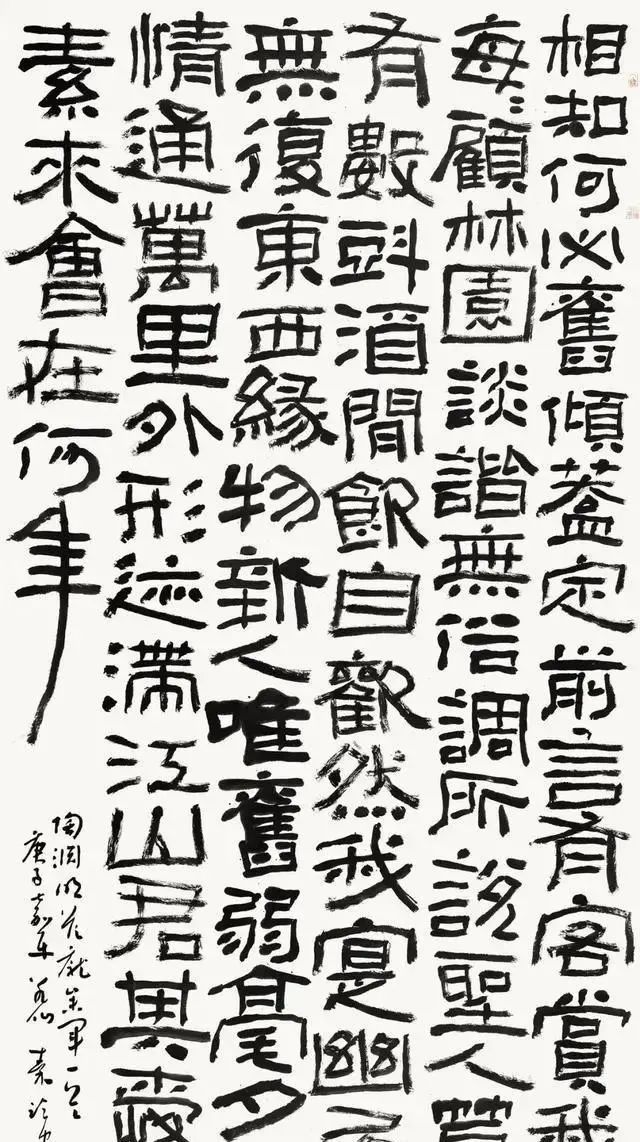 相知何必舊傾蓋定前言有客賞我
每〻顧林園談諧無俗調所說聖人
有數㪷酒閒飲自歡然我寔幽
無復東西緣物新人唯舊弱毫
情通萬里外形迹滯江山君其愛
素來會在何年
陶淵明答龐參軍一首
庚子嘉平